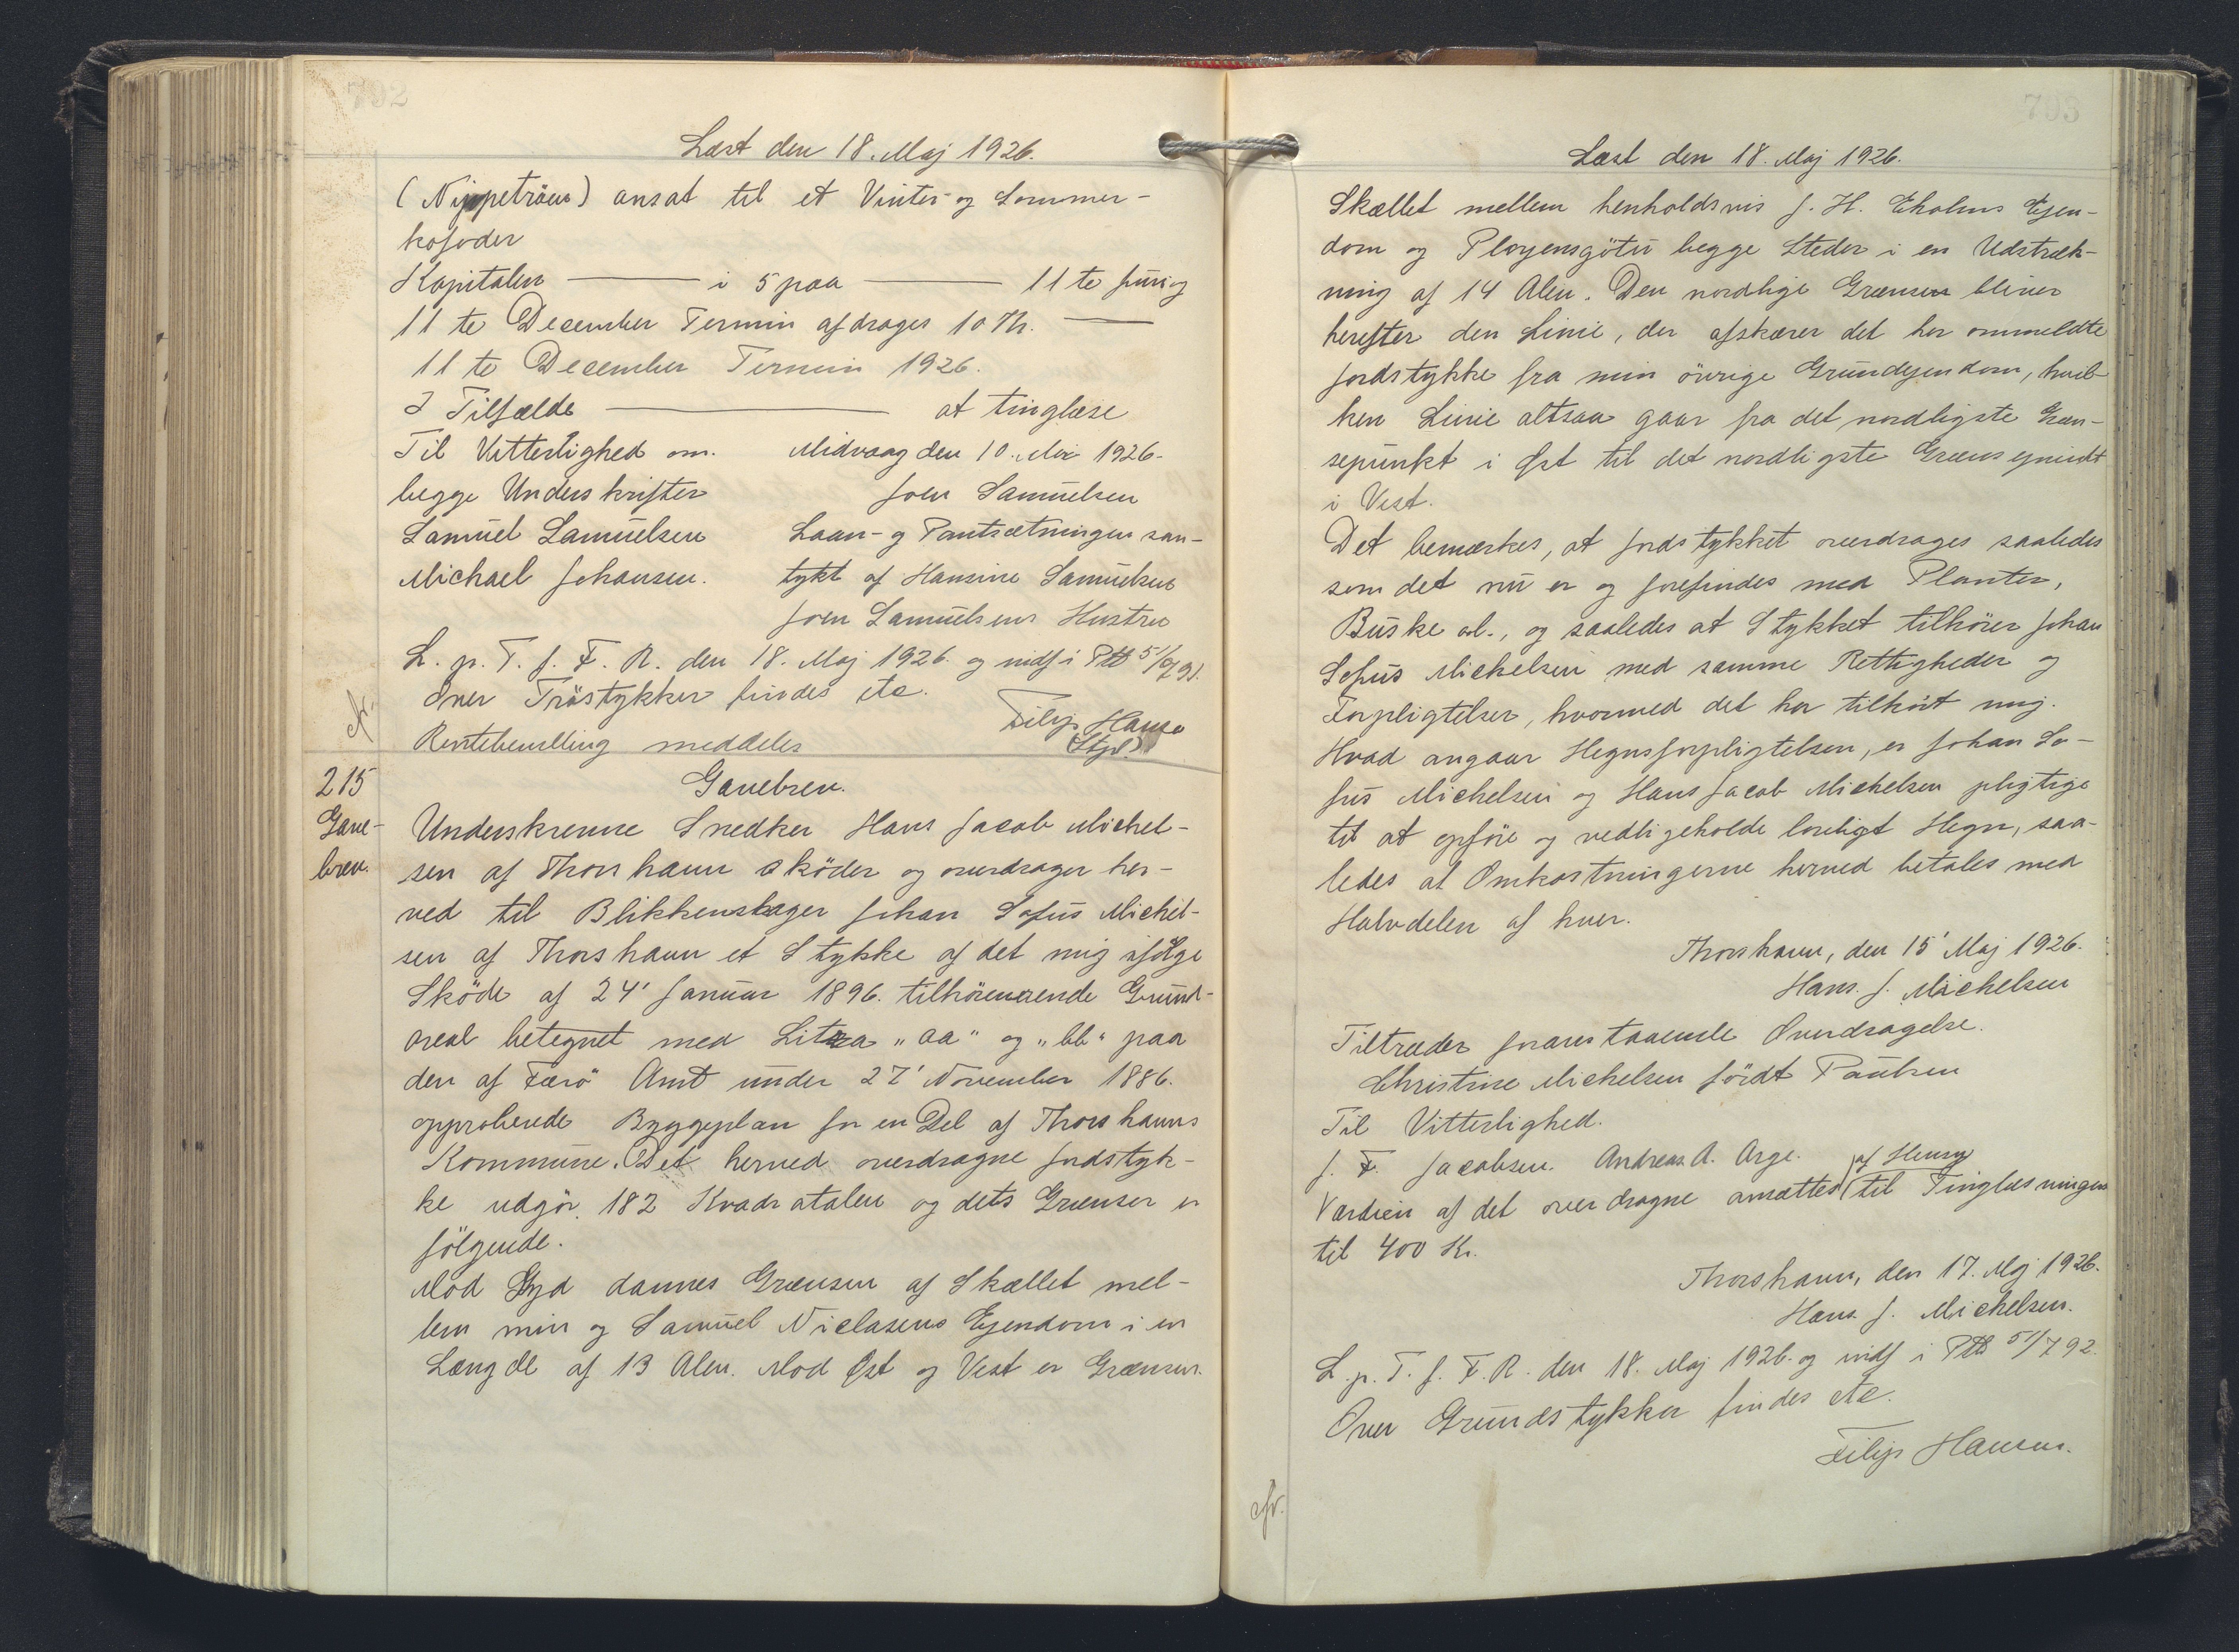 792
Læst den 18. Maj 1926.
(Nippetröen) ansat til et Vinter- og Sommer-
kofoder
Kapitalen ——— i 5 paa ——— 11te Juni og
11te December Termin afdrages 10 Kr. ———
11te December Termin 1926.
I Tilfælde ——— at tinglæse
Til Vitterlighed om. Midvaag den 10. Mai 1926.
begge Underskrifter Joen Samuelsen
Samuel Samuelsen Laan- og Pantsætningen sam-
Michael Johansen. tykt af Hansine Samuelsen
Joen Samuelsens Hustru
L. p. T. f. F. R. den 18. Maj 1926. og indf i Ptb 51/791.
Over Tröstykker findes etc.
cfr. Rentebevilling meddeles Filip Hansen
(Stpl.)
215 Gavebrev.
Gave- Underskrevne Snedker Hans Jacob Michel-
brev. sen af Thorshavn sköder og overdrager her-
ved til Blikkenslager Johan Sofus Michel-
sen af Thorshavn et Stykke af det mig ifölge
Sköde af 24' Januar 1896. tilhörenende Grund-
areal betegnet med Litra „aa" og „bb" paa
den af Færö Amt under 27' November 1886.
approberede Byggeplan for en Del af Thorshavns
Kommune. Det herved overdragne Jordstyk-
ke udgör 182 Kvadratalen og dets Grænser er
fölgende.
Mod Syd dannes Grænsen af Skællet mel-
lem min og Samuel Niclasens Ejendom i en
Længde af 13 Alen. Mod Øst og Vest er Grænsen.
793
Læst den 18. Maj 1926.
Skællet mellem henholdsvis J. H. Ekholms Ejen-
dom og Ployensgötu begge Steder i en Udstræk-
ning af 14 Alen. Den nordlige Grænsen bliver
herefter den Linie, der afskærer det her ommeldte
Jordstykke fra min övrige Grundejendom, hvil-
ken Linie altsaa gaar fra det nordligste Græn-
sepunkt i Øst til det nordligste Grænsepunkt
i Vest.
Det bemærkes, at Jordstykket overdrages saaledes
som det nu er og forefindes med Planter,
Buske ol., og saaledes at Stykket tilhörer Johan
Sofus Michelsen med samme Rettigheder og
Forpligtelser, hvormed det har tilhört mig.
Hvad angaar Hegnsforpligtelsen, er Johan So-
fus Michelsen og Hans Jacob Michelsen pligtige
til at opföre og vedligeholde lovligt Hegn, saa-
ledes at Omkostningerne herved betales med
Halvdelen af hver.
Thorshavn, den 15' Maj 1926.
Hans. J. Michelsen
Tiltræder foranstaaende Overdragelse.
Christine Michelsen födt Paulsen
Til Vitterlighed.
J. F. Jacobsen. Andreas A. Arge.
af Hensyn
Værdien af det overdragne ansættes til Tinglæsningen
til 400 Kr.
Thorshavn, den 17. Maj 1926.
Hans. J. Michelsen.
L. p. T. f. F. R. den 18. Maj 1926. og indf i Ptb 51/792.
Over Grundstykker findes etc.
Filip Hansen.
cfr.